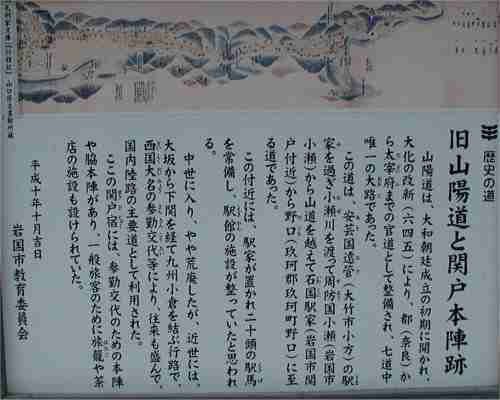 歴史の道
旧山陽道と関戸本陣跡
山陽道は、大和朝廷成立の初期に開かれ、
大化の改新(六四五)により、都(奈良)か
ら太宰府までの官道として整備され、七道中
唯一の大路であった。
この道は、安芸国遠管(大竹市小方)の駅
家を過ぎ小瀬川を渡って周防国小瀬(岩国市
小瀬)から山道を越えて石国駅家(岩国市関
戸付近)から野口(玖珂郡玖珂町野口)に至
る道であった。
この付近には、駅家が置かれ二十頭の駅馬
を常備し、駅館の施設が整っていたと思われ
る。
中世に入り、やや荒廃したが、近世には、
大坂から下関を経て九州小倉を結ぶ行路で、
西国大名の参勤交代等により、往来も盛んで、
国内陸路の主要道として利用された。
ここの関戸宿には、参勤交代のための本陣
や脇本陣があり、一般旅客のために旅籠や茶
店の施設も設けられていた。
平成十年十月吉日
岩国市教育委員会